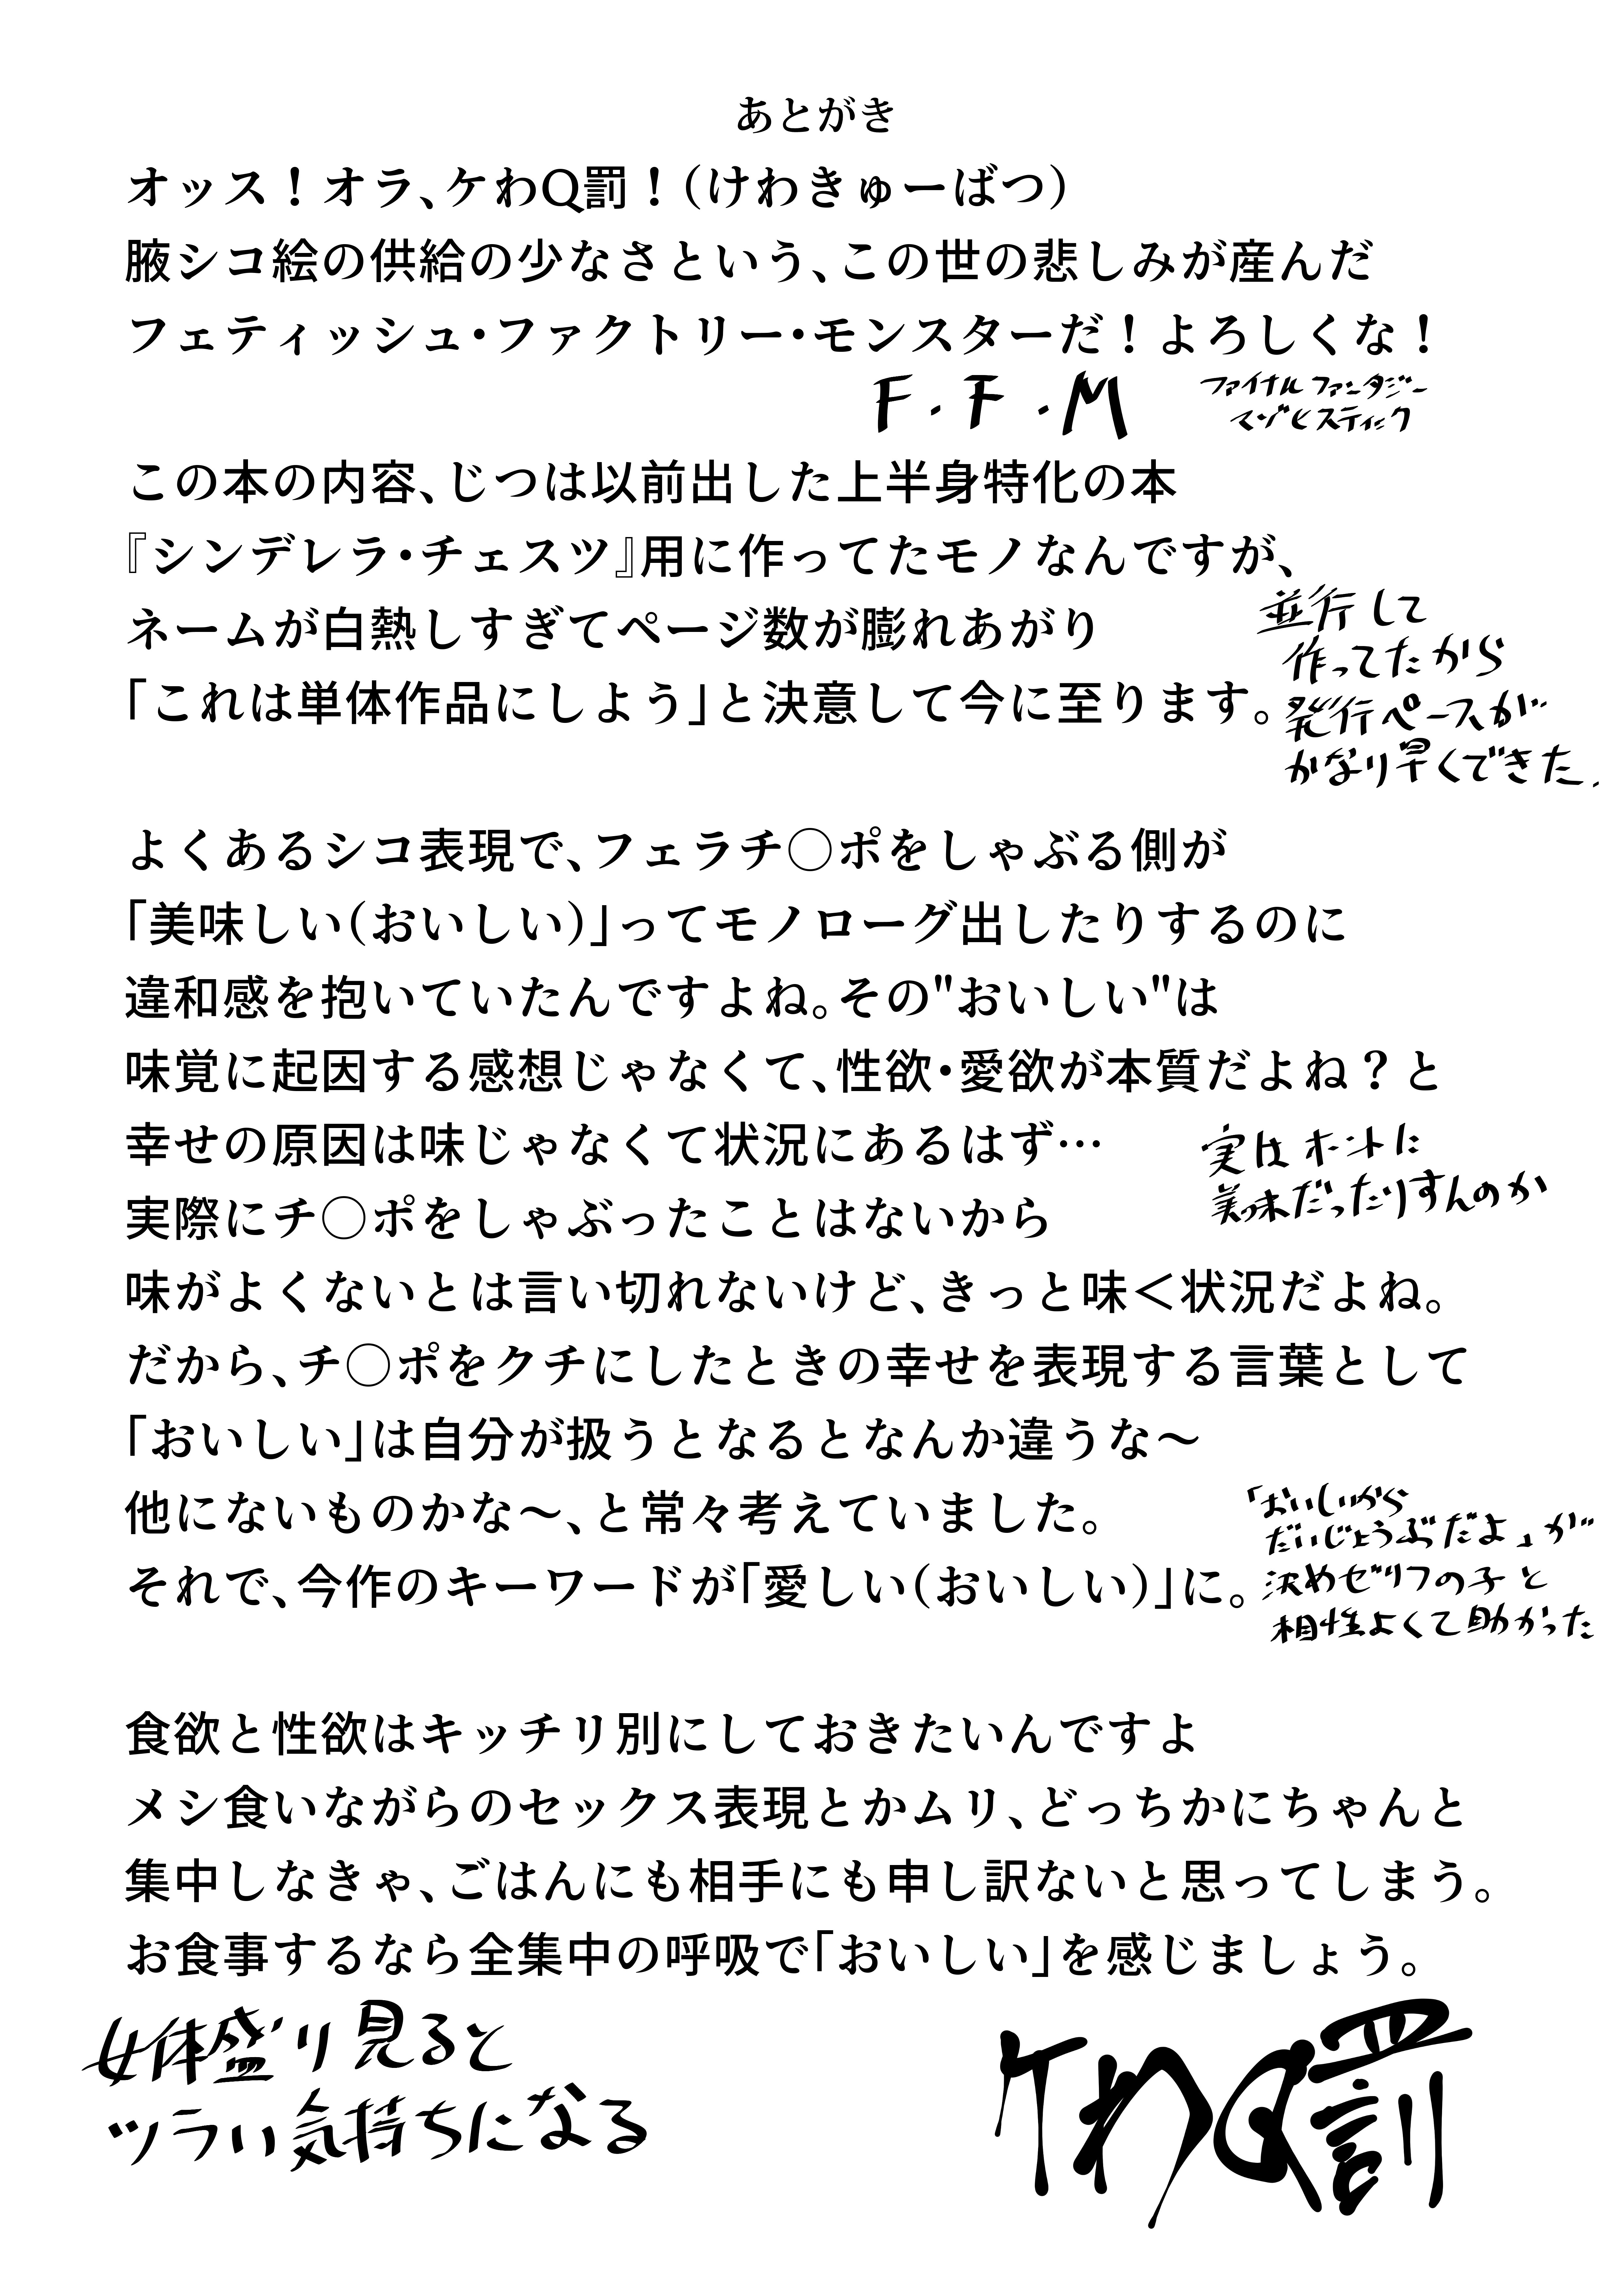 あとがき
オッス！オラ、ケわQ罰！（けわきゅーばつ）
腋シコ絵の供給の少なさという、この世の悲しみが産んだ
フェティッシュ・ファクトリー・モンスターだ！よろしくな！
F・F・M
ファイナルファンタジー
マゾヒスティック
この本の内容、じつは以前出した上半身特化の本
『シンデレラ・チェスツ』用に作ってたモノなんですが、
ネームが白熱しすぎてページ数が膨れあがり
「これは単体作品にしよう」と決意して今に至ります。
並行して
作ってたから
発行ペースが
かなり早くできた、
よくあるシコ表現で、フェラチ〇ポをしゃぶる側が
「美味しい（おいしい）」ってモノローグ出したりするのに
違和感を抱いていたんですよね。その"おいしい"は
味覚に起因する感想じゃなくて、性欲・愛欲が本質だよね？と
幸せの原因は味じゃなくて状況にあるはず…
実はホントに
美味だったりすんのか
実際にチ〇ポをしゃぶったことはないから
味がよくないとは言い切れないけど、きっと味＜状況だよね。
だから、チ〇ポをクチにしたときの幸せを表現する言葉として
「おいしい」は自分が扱うとなるとなんか違うな〜
他にないものかな〜、と常々考えていました。
それで、今作のキーワードが「愛しい（おいしい）」に。
「おいしいから
だいじょうぶだよ」が
決めゼリフの子と
相性よくて助かった
食欲と性欲はキッチリ別にしておきたいんですよ
メシ食いながらのセックス表現とかムリ、どっちかにちゃんと
集中しなきゃ、ごはんにも相手にも申し訳ないと思ってしまう。
お食事するなら全集中の呼吸で「おいしい」を感じましょう。
女体盛り見ると
ツラい気持ちになる
ケわQ罰